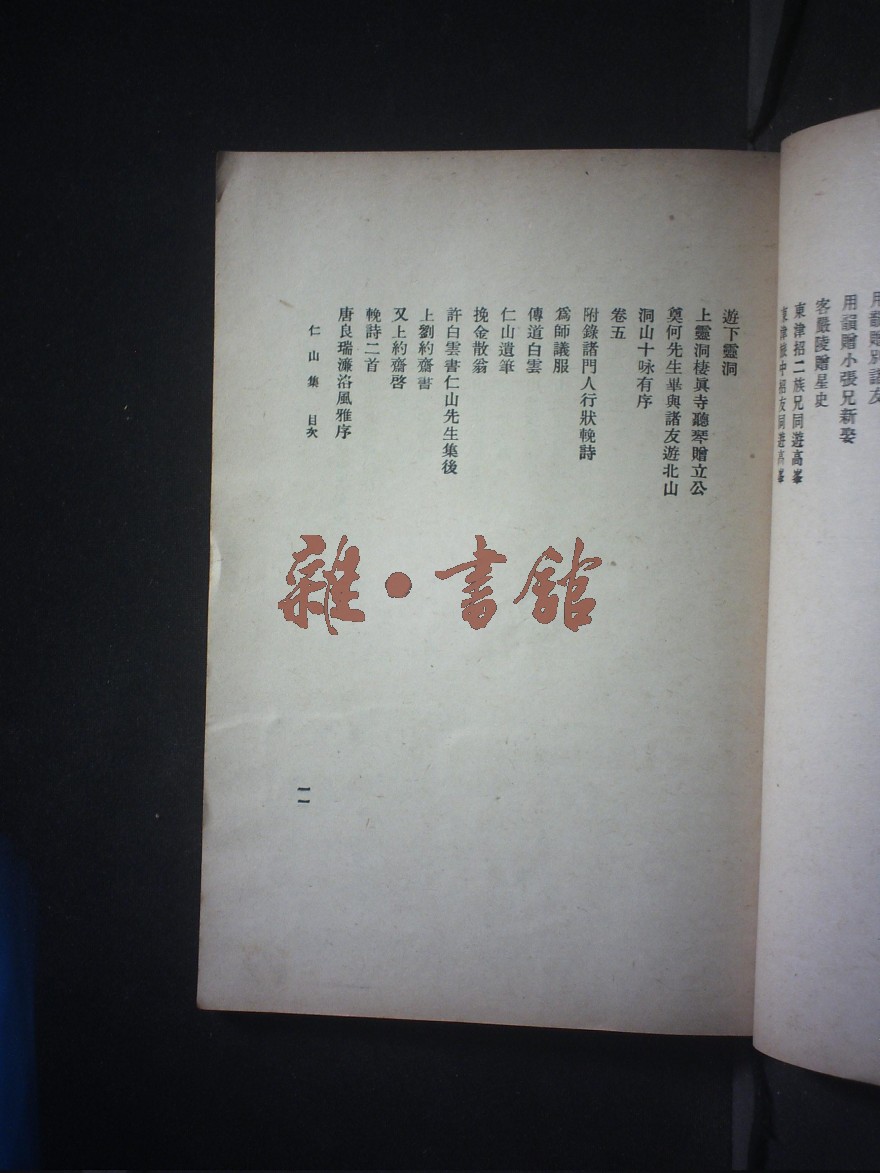 用韻贈別諸友
用韻贈小張兄新娶
客嚴陵贈星史
東津招二族兄同遊高峯
遊下靈洞
上靈洞棲眞寺聽琴贈立公
奠何先生畢與諸友遊北山
洞山十咏有序
卷五
附錄諸門人行狀輓詩
爲師議服
傳道白雲
仁山遺筆
挽金散翁
許白雲書仁山先生集後
上劉約齋書
又上約齋啓
輓詩二首
唐良瑞濂洛風雅序
仁山集 目次
一一
雜·書館